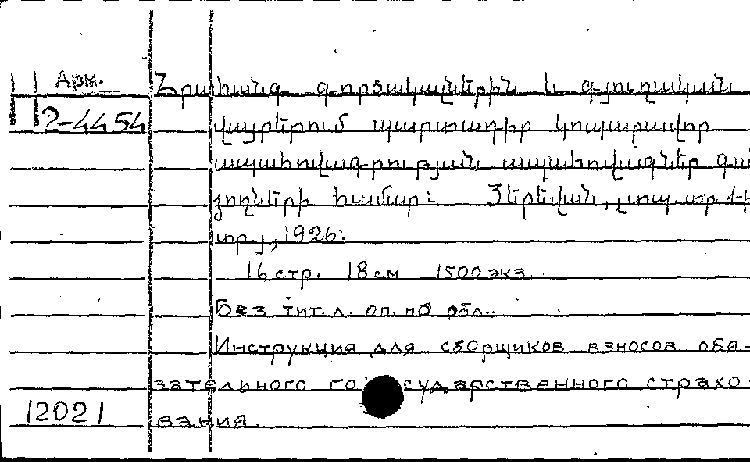 Арм.
2-4454
Հրահանգ գործակալներին և գյուղական
վայրերում պարտադիր կոպարավոր
ապահովագրության ապահովագներ գան
ձողների համար: Յերեվան,
տր.], 1926:
16 стр. 18 см 1500 экз.
Без тит. л. оп. по обл.
Инструкция для сборщиков взносов обя-
зательного государственного страхо-
12021 вания.